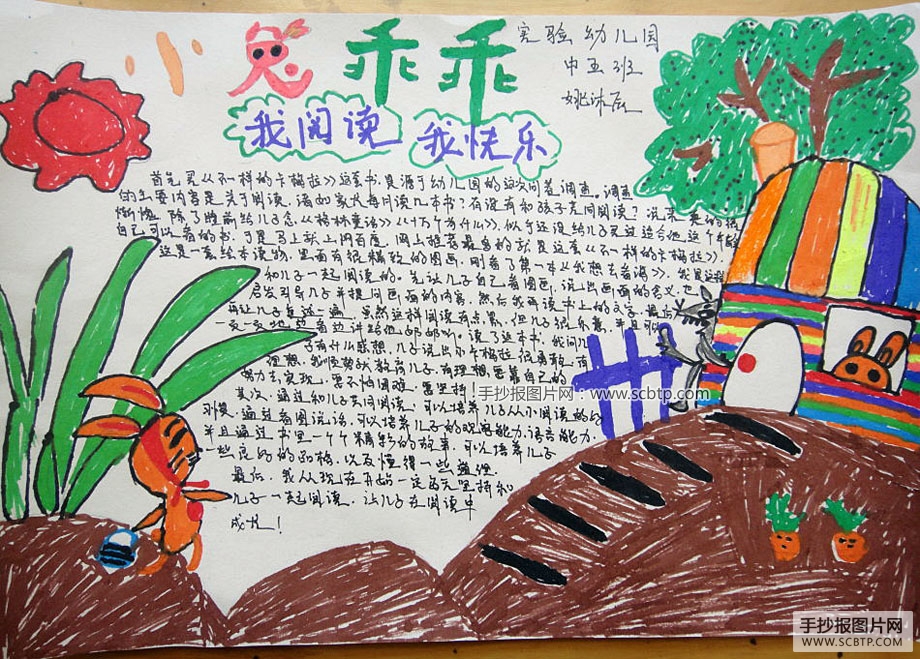 小兔乖乖
实验幼儿园
中五班
我阅读 我快乐
首先买《不一样的卡梅拉》这套书,是源于幼儿园的这次问卷调查。调查
的主要内容是关于阅读,诸如家长每月读几本书?有没有和孩子共同阅读?说来
惭愧,除了睡前给儿子念《格林童话》《十万个为什么》,似乎还没给儿子买过适合他这个年龄
自己可以看的书,于是马上就上网百度,网上推荐最多的就是这套《不一样的卡梅拉》,
这是一套绘本读物,里面有很精彩的图画。刚看了第一本《我想去看海》,我是这样
和儿子一起阅读的。先让儿子自己看图画,说出画面的含义,也
启发引导儿子并提问画面的内容,然后我再读书上的文字,最后
再让儿子复述一遍,虽然这样阅读有点累,但儿子很乐意,并且
边讲给他听。读了这本书,我问儿
子有什么感想,儿子说出小卡梅拉很勇敢,有
理想。我顺势教育儿子,有理想要靠自己的
努力去实现,要不怕困难,要坚持!
其次,通过和儿子共同阅读,可以培养儿子从小阅读的好
习惯,通过看图说话,可以培养儿子的观察能力,语言能力,
并且通过书里一个个精彩的故事,可以培养儿子
一些良好的品格,以及懂得一些道理。
最后,我从现在开始一定首先坚持和
儿子一起阅读,让儿子在阅读中
成长!
手抄报图片网:www.scbtp.com
手抄报图片网
WWW.SCBTP.COM